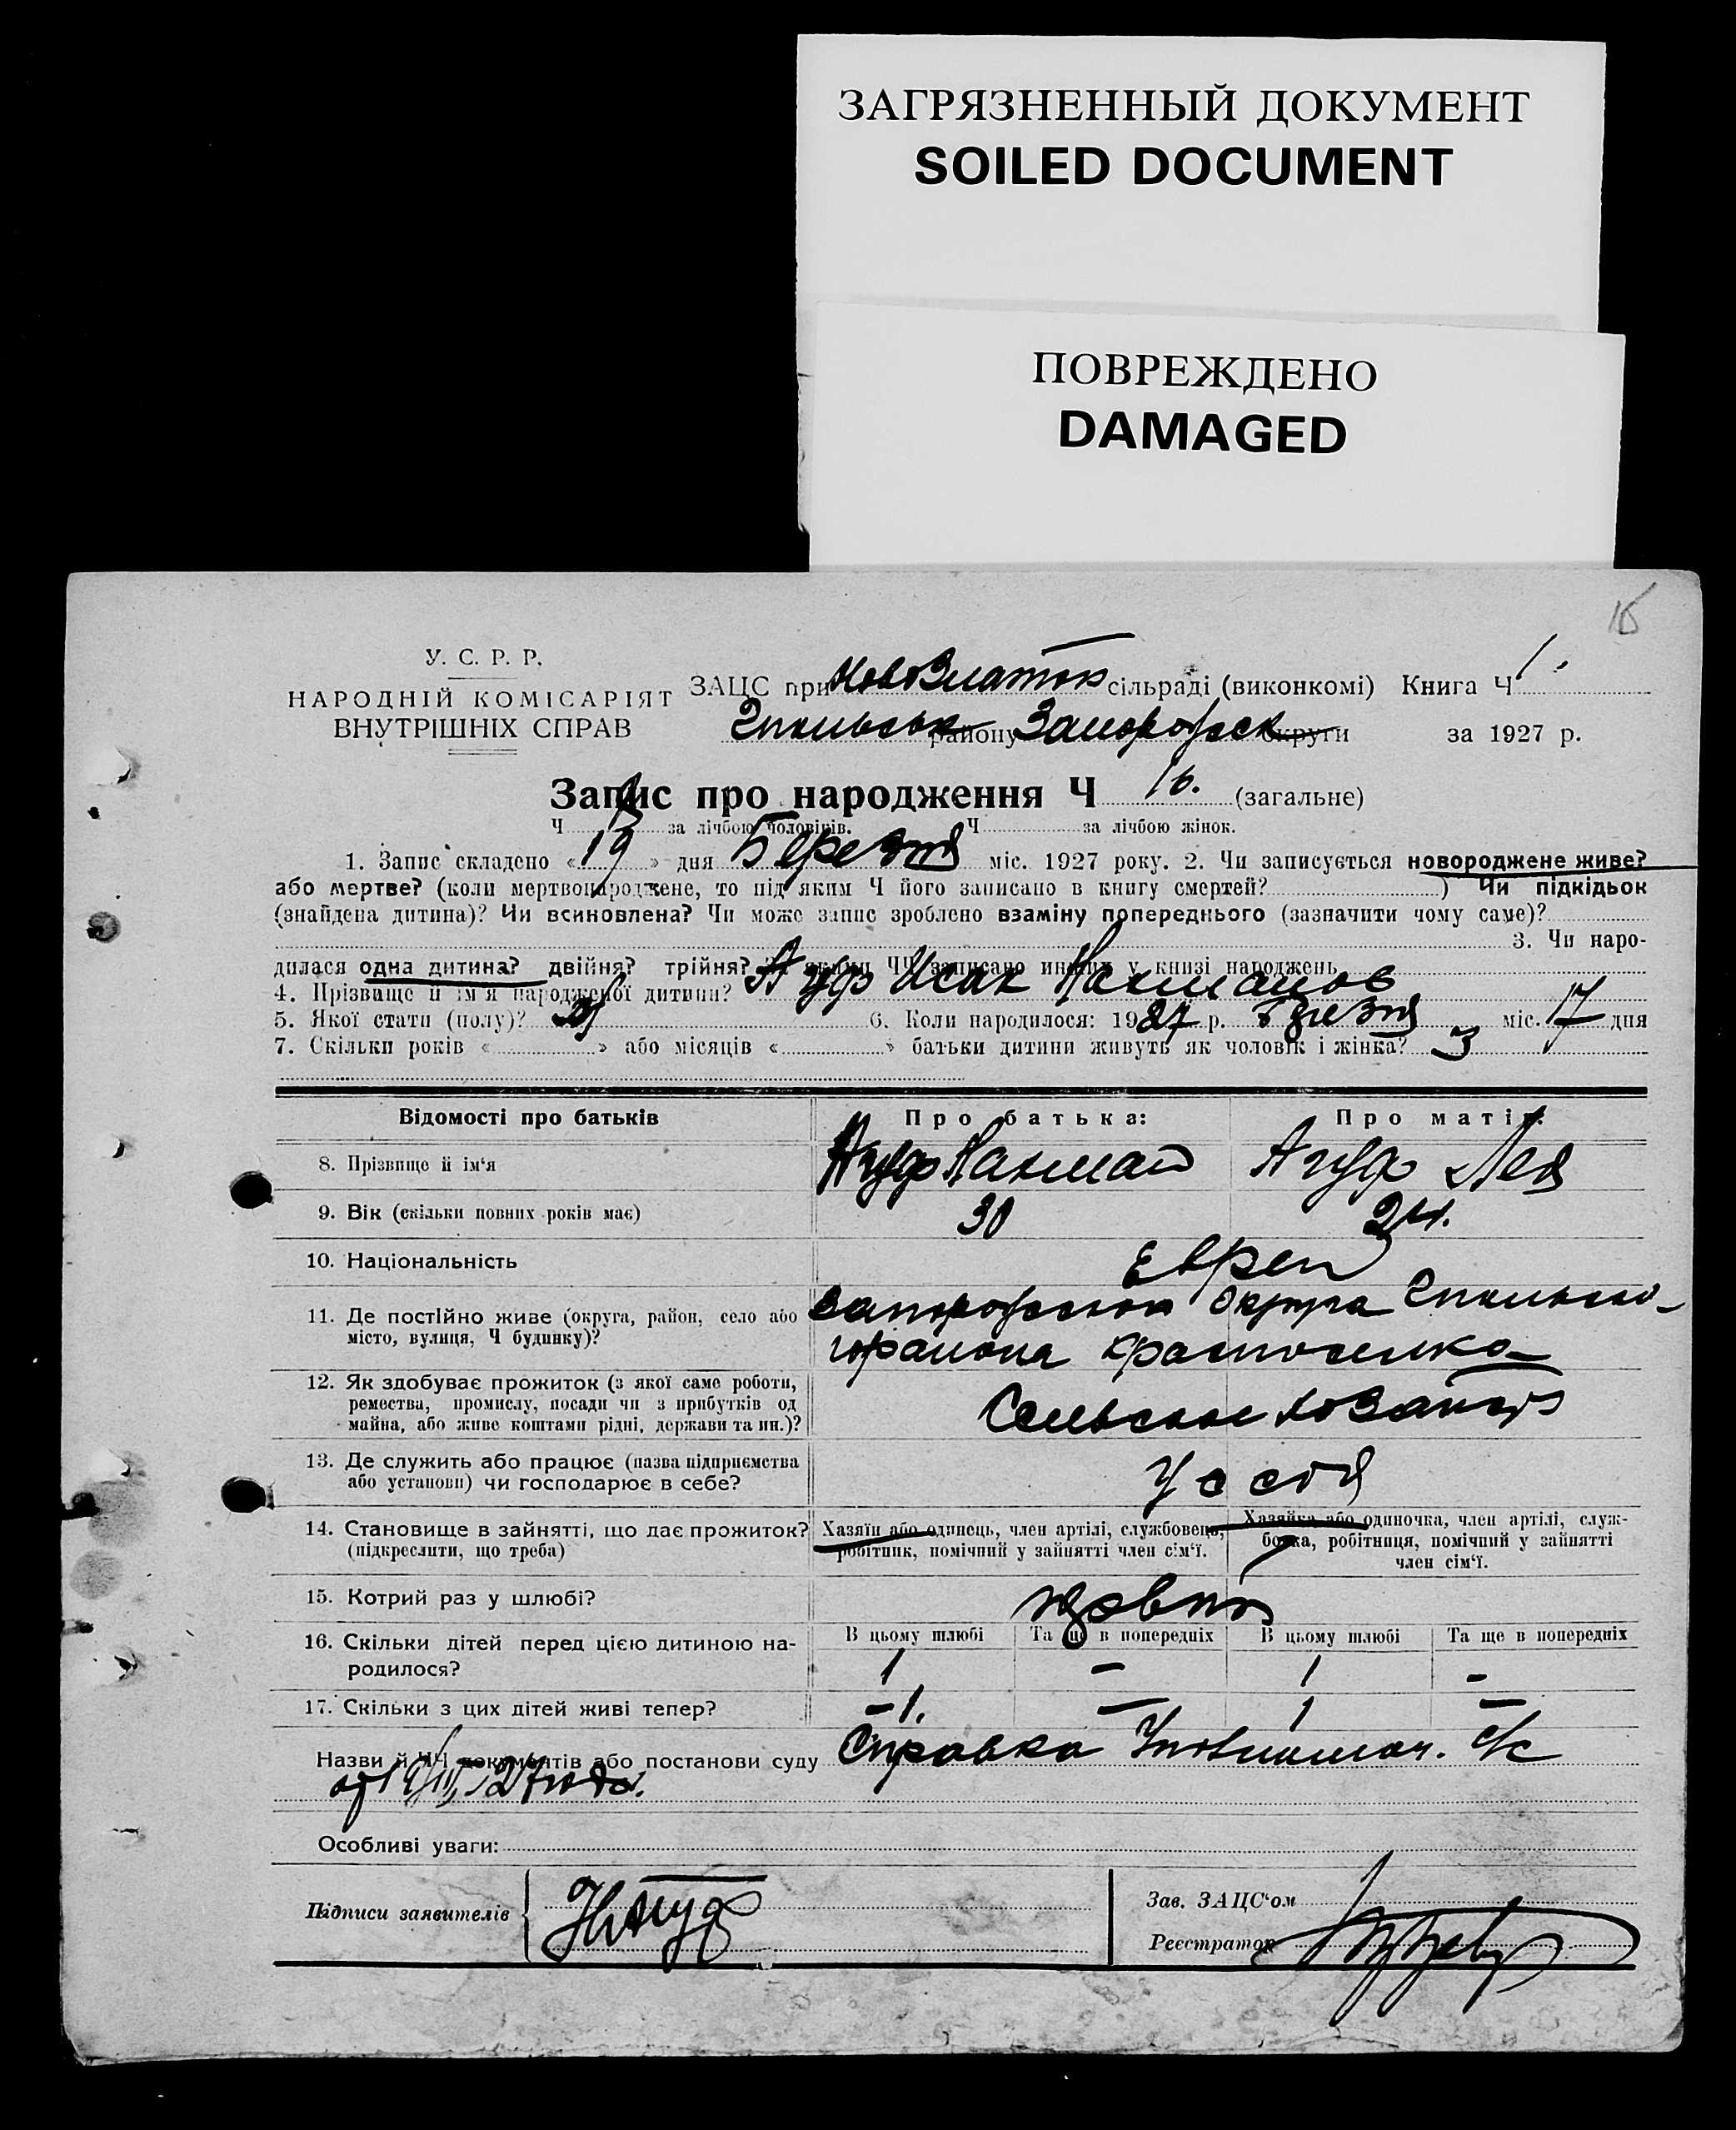 ЗАГРЯЗНЕННЫЙ ДОКУМЕНТ
SOILED DOCUMENT
ПОВРЕЖДЕНО
DAMAGED
У. С. Р. Р.
НАРОДНІЙ КОМІСАРІЯТ
ВНУТРІШНІХ СПРАВ
ЗАЦС при НовоЗлатоп сільраді (виконкомі) Книга Ч 1.
району Запорожск округи за 1927 р.
Запис про народження Ч 16. (загальне)
Ч за лічбою чоловіків. Ч за лічбою жінок.
1. Запис складено « 19 » дня Березня міс. 1927 року. 2. Чи записується новороджене живе?
або мертве? (коли мертвонароджене, то під яким Ч його записано в книгу смертей? ) Чи підкідьок
(знайдена дитина)? Чи всиновлена? Чи може запис зроблено взаміну попереднього (зазначити чому саме)?
3. Чи наро-
дилася одна дитина? двійня? трійня? Під якими ЧЧ записано инших у книзі народжень
4. Прізвище й ім'я народженої дитини? Агуф Исак Нахманов
5. Якої стати (полу)? 6. Коли народилося: 1927 р. Березня міс. 17 дня
7. Скільки років « » або місяців « » батьки дитини живуть як чоловік і жінка? 3
Відомості про батьків Про батька: Про матір:
8. Прізвище й ім'я Агуф Нахман Агуф Лея
9. Вік (скільки повних років має) 30 24.
10. Національність Евреи
11. Де постійно живе (округа, район, село або Запорожской округа
місто, вулиця, Ч будинку)? района Красноселка
12. Як здобуває прожиток (з якої саме роботи,
ремества, промислу, посади чи з прибутків од Сельское хозайство
майна, або живе коштами рідні, держави та ин.)?
13. Де служить або працює (назва підприємства
або установи) чи господарює в себе? У себя
14. Становище в зайнятті, що дає прожиток? Хазяїн або одинець, член артілі, службовець, Хазяйка або одиночка, член артілі, служ-
(підкреслити, що треба) робітник, помічний у зайнятті член сім'ї. бовка, робітниця, помічний у зайнятті
член сім'ї.
15. Котрий раз у шлюбі?
16. Скільки дітей перед цією дитиною на- В цьому шлюбі Та ще в попередніх В цьому шлюбі Та ще в попередніх
родилося? 1 – 1 –
17. Скільки з цих дітей живі тепер? – 1. – 1 –
Назви й ЧЧ документів або постанови суду Справка с/с
от 19/III 27 года.
Особливі уваги:
Підписи заявителів НАгуф Зав. ЗАЦС'ом
Реєстратор